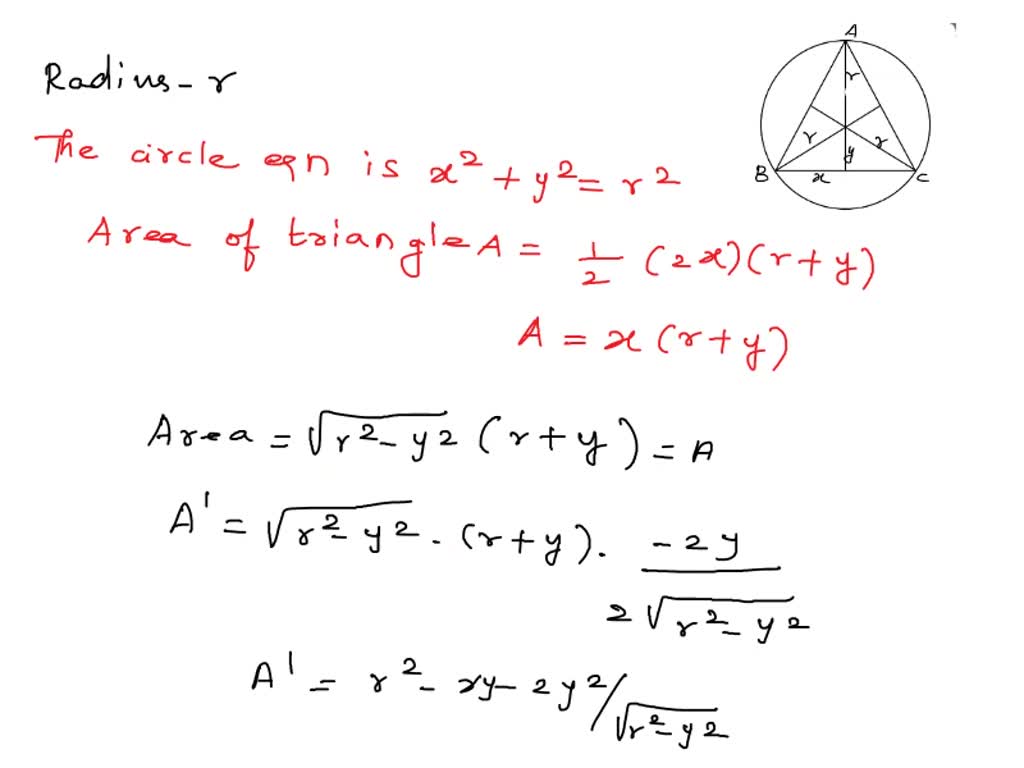 A
Radius - r
r
The circle eqn is x² + y² = r²
r r
y
B x C
Area of triangle A = 1/2 (2x)(r+y)
A = x (r+y)
Area = √r²-y² (r+y) = A
A' = √r²-y² . (r+y) . -2y / 2√r²-y²
A' = r² - ry - 2y² / √r²-y²